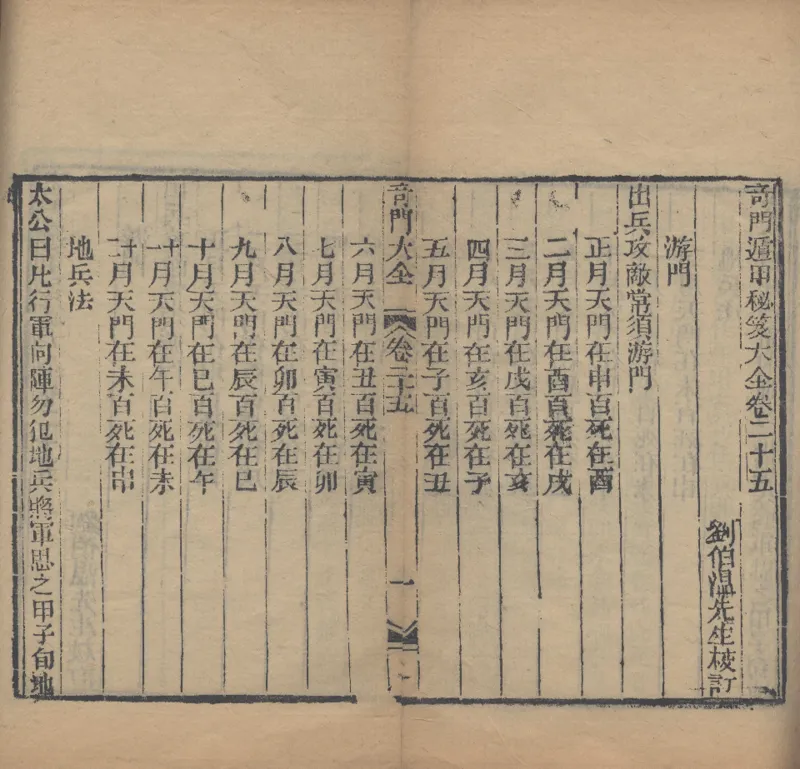 奇門遁甲秘笈大全卷二十五
劉伯溫先生校訂
游門
出兵攻敵常須游門
正月天門在申百死在酉
二月天門在酉百死在戌
三月天門在戌百死在亥
四月天門在亥百死在子
五月天門在子百死在丑
奇門大全
卷二十五
一
六月天門在丑百死在寅
七月天門在寅百死在卯
八月天門在卯百死在辰
九月天門在辰百死在巳
十月天門在巳百死在午
十一月天門在午百死在未
十二月天門在未百死在申
地兵法
太公曰凡行軍向陣勿犯地兵將軍思之甲子旬地